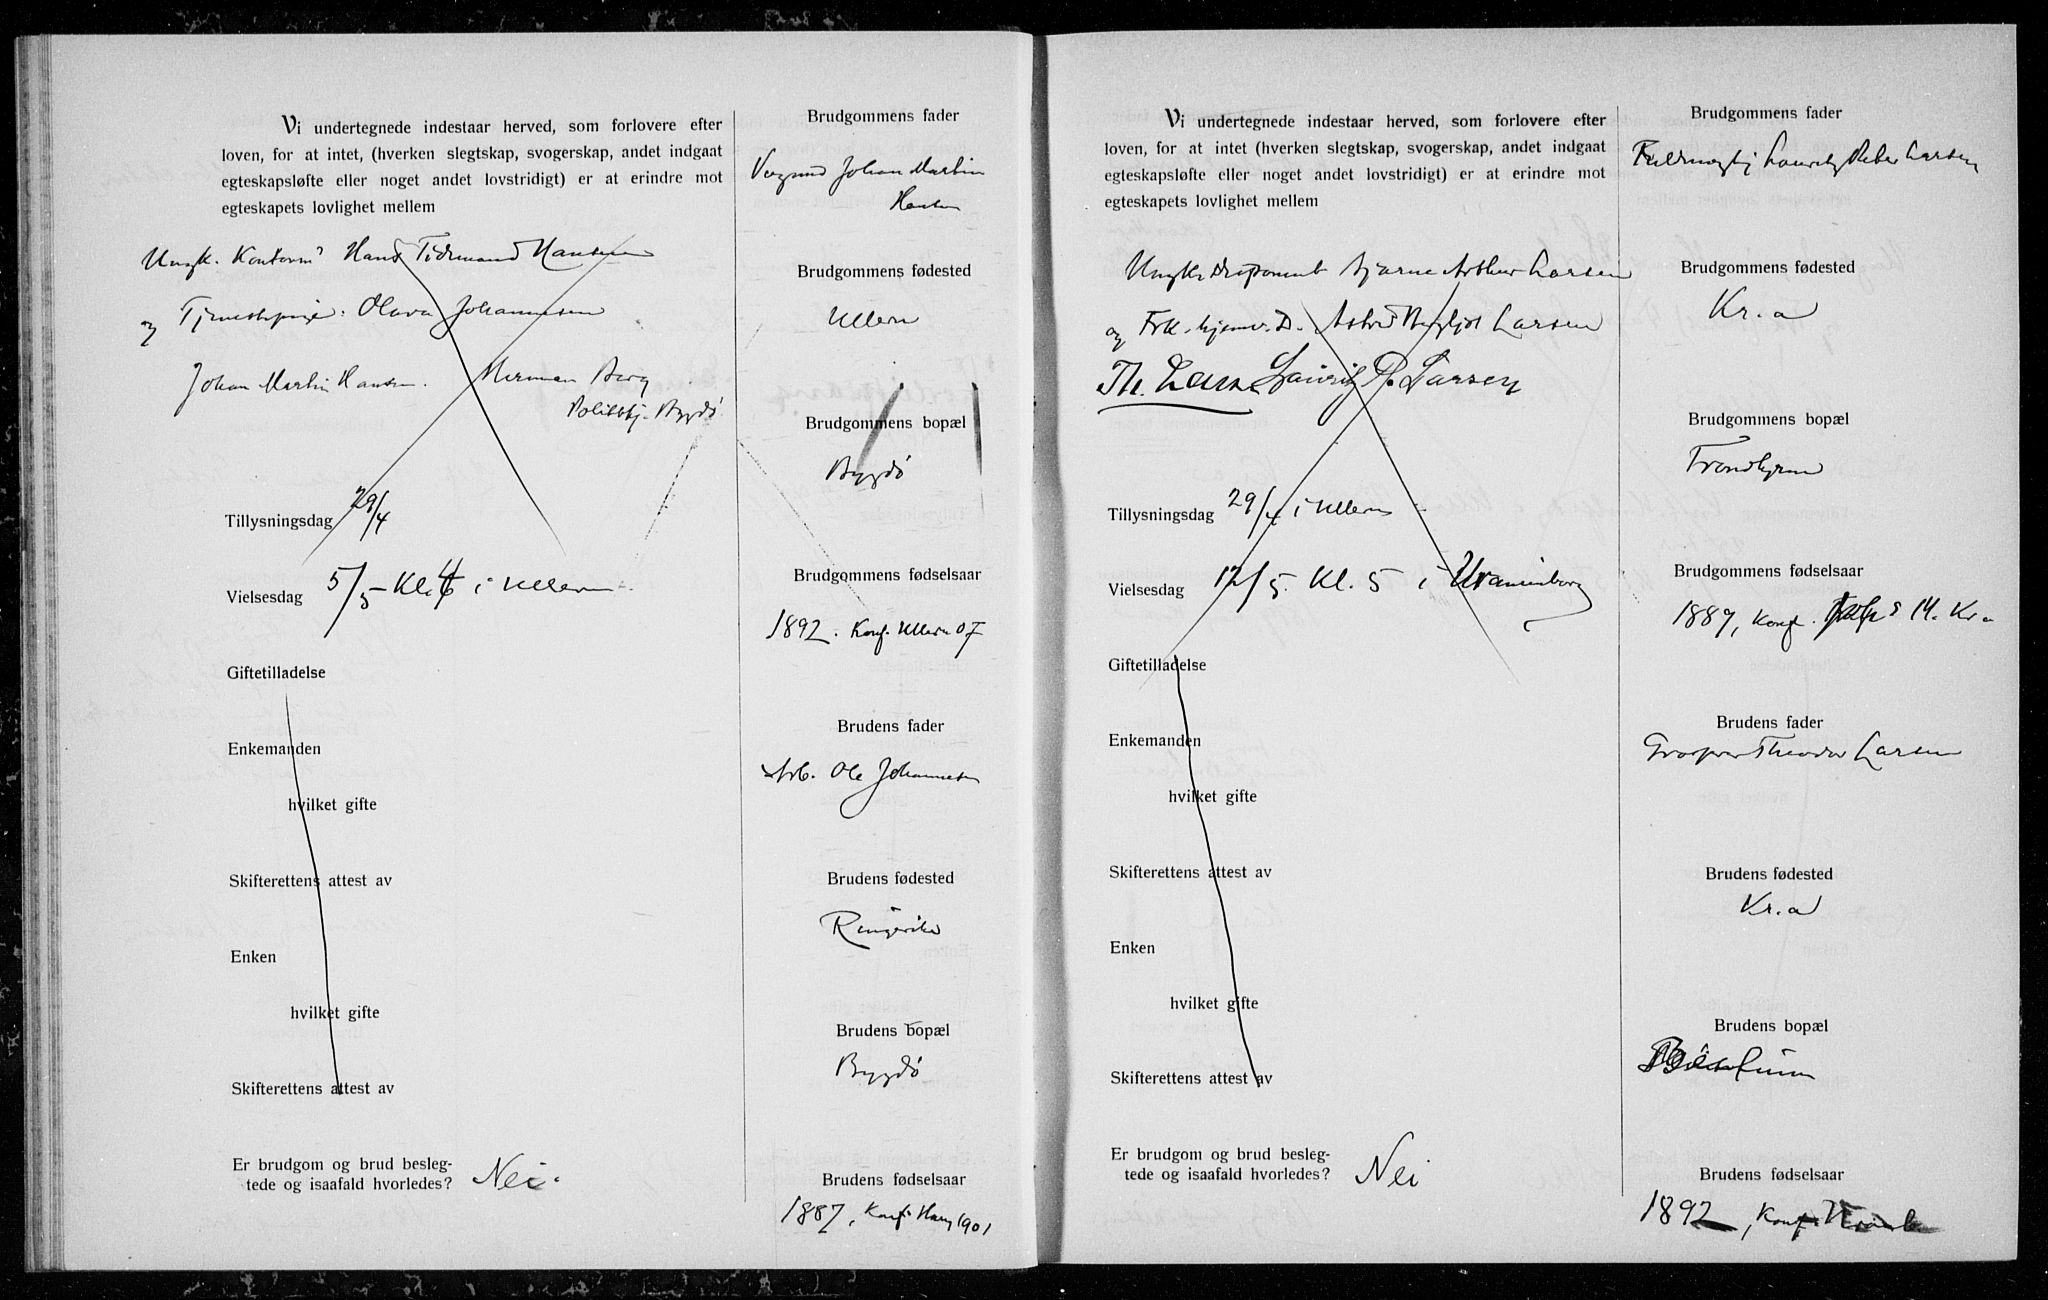 Vi undertegnede indestaar herved, som forlovere efter
loven, for at intet, (hverken slegtskap, svogerskap, andet indgaat
egteskapsløfte eller noget andet lovstridigt) er at erindre mot
egteskapets lovlighet mellem
Ungk. Kontorm. Hans Tidemand Hansen
og Tjenestepige Olava Johannesen
Johan Martin Hansen. Herman Berg
Politibtj. Bygdø
Tillysningsdag 29/4
Vielsesdag 5/5 Kl. 4 i Ullern
Giftetilladelse
Enkemanden
hvilket gifte
Skifterettens attest av
Enken
hvilket gifte
Skifterettens attest av
Er brudgom og brud besleg-
tede og isaafald hvorledes? Nei.
Brudgommens fader
Johan Martin
Hansen
Brudgommens fødested
Ullern
Brudgommens bopæl
Bygdø
Brudgommens fødselsaar
1892. Konf. Ullern 07
Brudens fader
Arb. Ole Johannesen
Brudens fødested
Ringerike
Brudens bopæl
Bygdø
Brudens fødselsaar
1887, Konf. Haug 1901
Vi undertegnede indestaar herved, som forlovere efter
loven, for at intet, (hverken slegtskap, svogerskap, andet indgaat
egteskapsløfte eller noget andet lovstridigt) er at erindre mot
egteskapets lovlighet mellem
Ungk. Disponent Bjarne Arthur Larsen
og Frk. hjemv. D. Astrid Bergljot Larsen
Th. Larsen Lauritz P. Larsen
Tillysningsdag 29/4 i Ullern
Vielsesdag 12/5. Kl. 5 i Uranienborg
Giftetilladelse
Enkemanden
hvilket gifte
Skifterettens attest av
Enken
hvilket gifte
Skifterettens attest av
Er brudgom og brud besleg-
tede og isaafald hvorledes? Nei
Brudgommens fader
Fuldmægtig Lauritz Peter Larsen
Brudgommens fødested
Kr.a
Brudgommens bopæl
Trondhjem
Brudgommens fødselsaar
1889, Konf. Kr.a
Brudens fader
Grosserer Theodor Larsen
Brudens fødested
Kr.a
Brudens bopæl
Bestum
Brudens fødselsaar
1892, Konf.